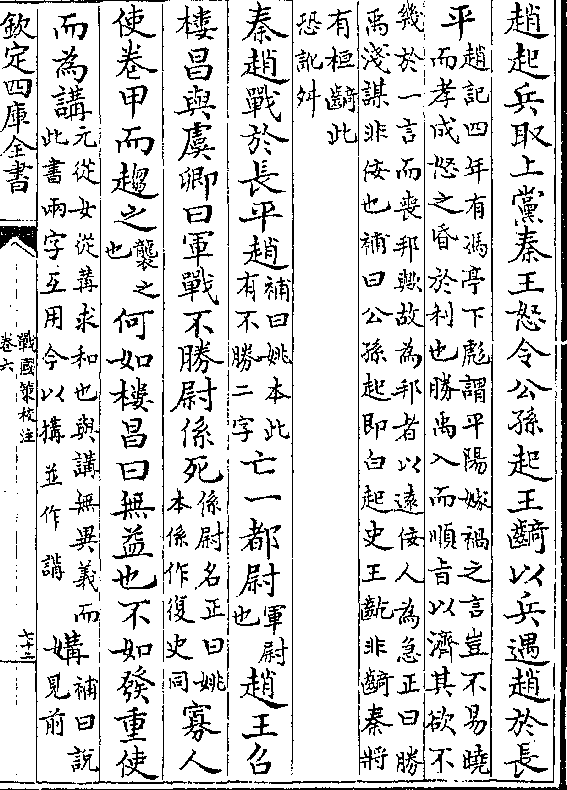 趙起兵取上黨秦王怒令公孫起王齮以兵遇趙於長
平趙記四年有馮亭下彪謂平陽嫁禍之言豈不易曉
而孝成怒之昏於利也勝禹入而順旨以濟其欲不
幾於一言而喪邦歟故為邦者以遠佞人為急正曰勝
禹淺謀非佞也補曰公孫起即白起史王齕非齮秦將
有桓齮此
恐訛舛
秦趙戰於長平趙補曰姚本此有不勝二字亡一都尉軍尉也趙王召
樓昌與虞卿曰軍戰不勝尉係死係尉名正曰姚本係作復史同寡人
使卷甲而趨之襲之也何如樓昌曰無益也不如發重使
而為講元從女從冓求和也與講無異義而此書兩字互用今以搆並作講媾補曰說見前
欽定四庫全書
戰國策校注
卷六
七十二